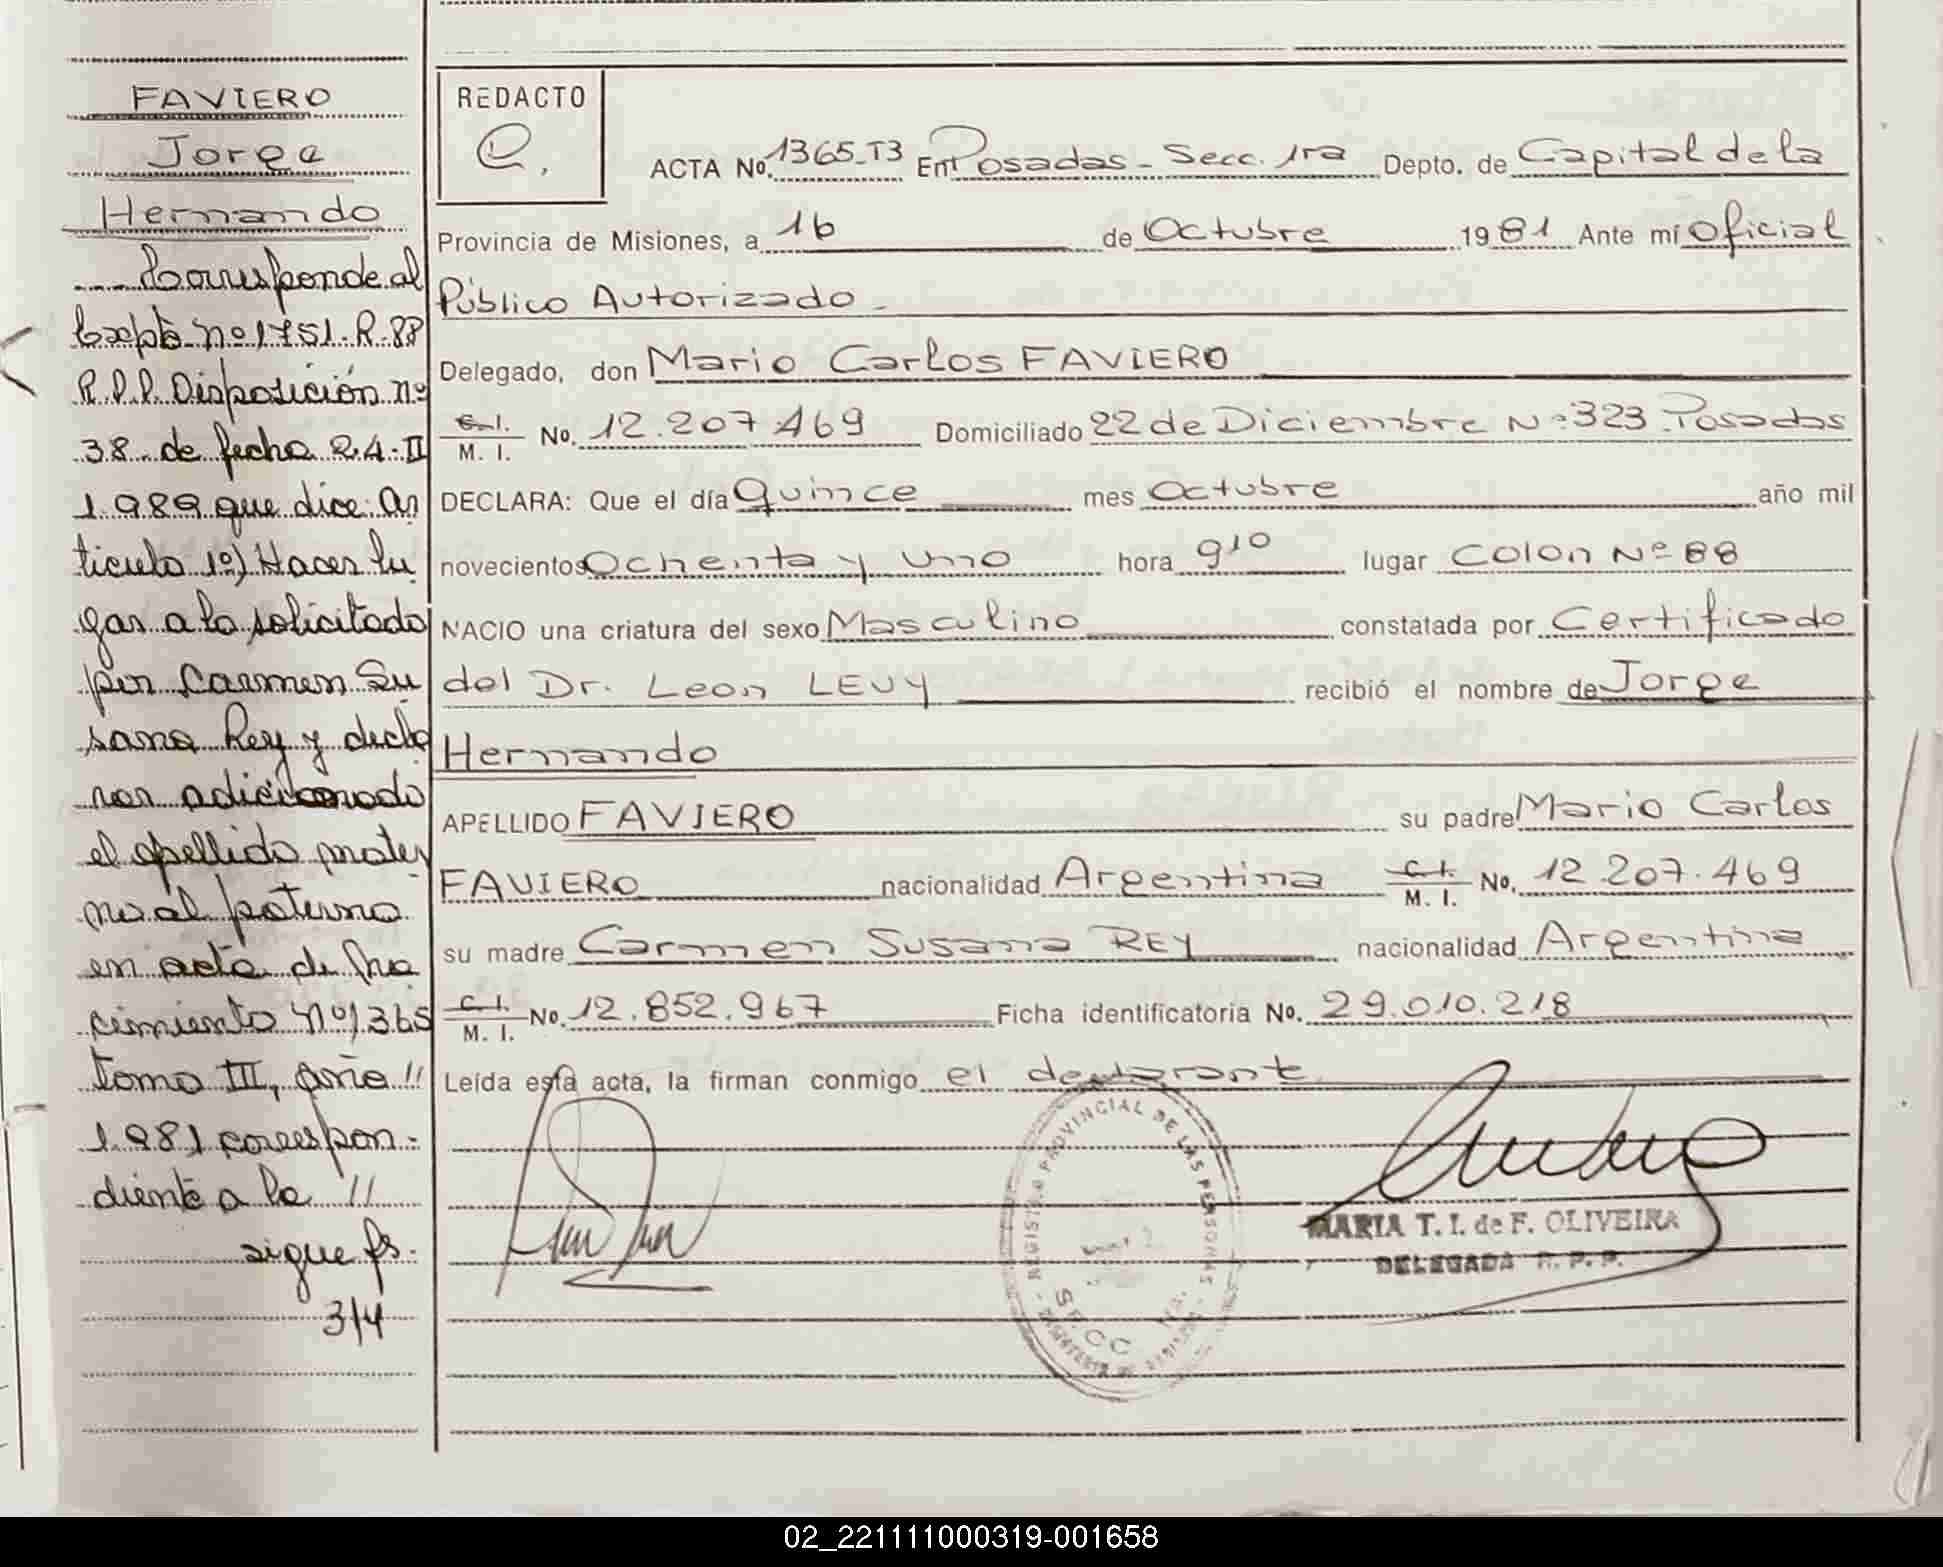 FAVIERO
Jorge
Hernando
---- Corresponde al
Expte nº 1751-R-88
R.P.P. Disposición nº
38 de fecha 24-II
1.989 que dice: Ar
tículo 1º) Hacer lu
gar a lo solicitado
por Carmen Su
sana Rey y decla
rar adicionado
el apellido mater
no al paterno
en acta de Na
cimiento Nº 1365
tomo III, año //
1.981 correspon-
diente a la //
sigue fs.
3/4
REDACTO
C.
ACTA No. 1365-T3 En Posadas - Secc. 1ra Depto. de Capital de la
Provincia de Misiones, a 16 de Octubre 1981 Ante mí Oficial
Público Autorizado -
Delegado, don Mario Carlos FAVIERO
C.I. M. I. No. 12.207.469 Domiciliado 22 de Diciembre Nº 323 - Posadas
DECLARA: Que el día Quince mes Octubre año mil
novecientos Ochenta y uno hora 9 10 lugar COLON Nº 88
NACIO una criatura del sexo Masculino constatada por Certificado
del Dr. Leon LEVY recibió el nombre de Jorge
Hernando
APELLIDO FAVIERO su padre Mario Carlos
FAVIERO nacionalidad Argentina C.I. M. I. No. 12.207.469
su madre Carmen Susana REY nacionalidad Argentina
C.I. M. I. No. 12.852.967 Ficha identificatoria No. 29.010.218
Leída esta acta, la firman conmigo el declarante
REGISTRO PROVINCIAL DE LAS PERSONAS
MARIA T. I. de F. OLIVEIRA
DELEGADA R. P. P.
02_221111000319-001658